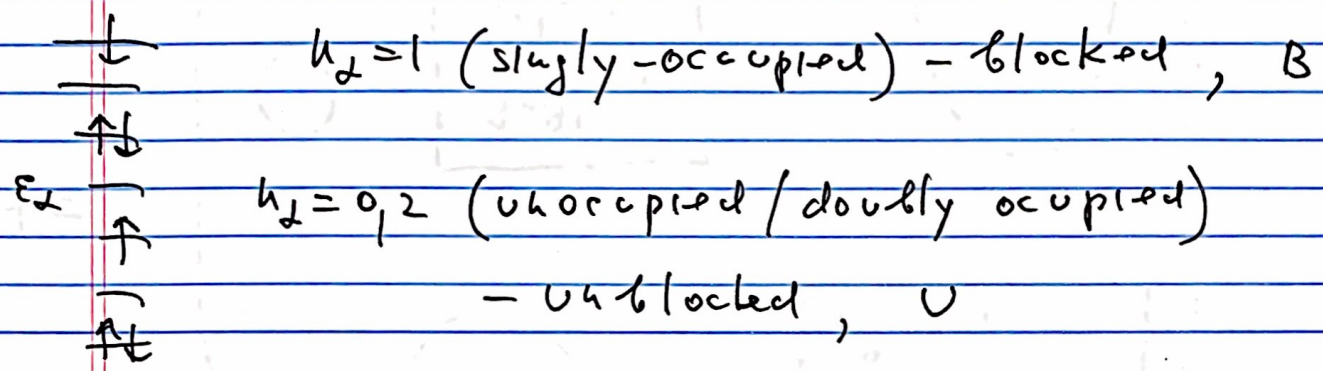 n_α = 1 (singly-occupied) - blocked, B
ε_α n_α = 0,2 (unoccupied / doubly ocupied)
- unblocked, U